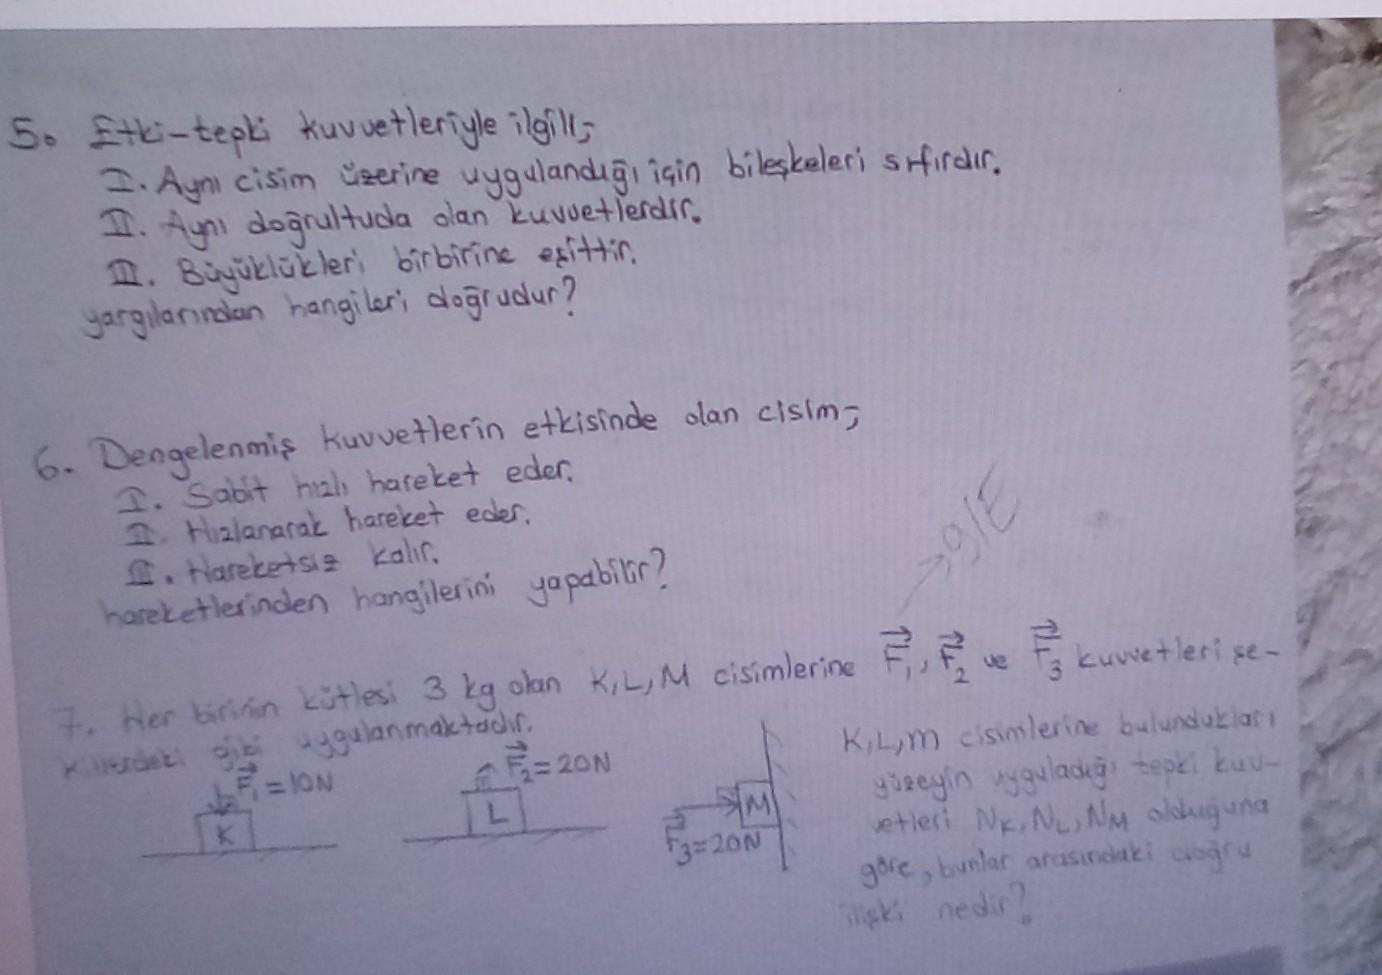 5. Etki-tepki kuvvetleriyle ilgili;
I. Aynı cisim üzerine uygulandığı için bileşkeleri sıfırdır.
II. Aynı doğrultuda olan kuvvetlerdir.
III. Büyüklükleri birbirine eşittir.
yargılarından hangileri doğrudur?
6. Dengelenmiş kuvvetlerin etkisinde olan cisim;
I. Sabit hızlı hareket eder.
II. Hızlanarak hareket eder.
III. Hareketsiz kalır.
hareketlerinden hangilerini yapabilir?
→ 9/E
7. Her birinin kütlesi 3 kg olan K, L, M cisimlerine F₁, F₂ ve F₃ kuvvetleri şe-
killerdeki gibi uygulanmaktadır.
F₁ = 10N
K
F₂ = 20N
L
M
F₃ = 20N
K, L, M cisimlerine bulundukları
yüzeyin uyguladığı tepki kuv-
vetleri NK, NL, NM olduğuna
göre, bunlar arasındaki doğru
ilişki nedir?